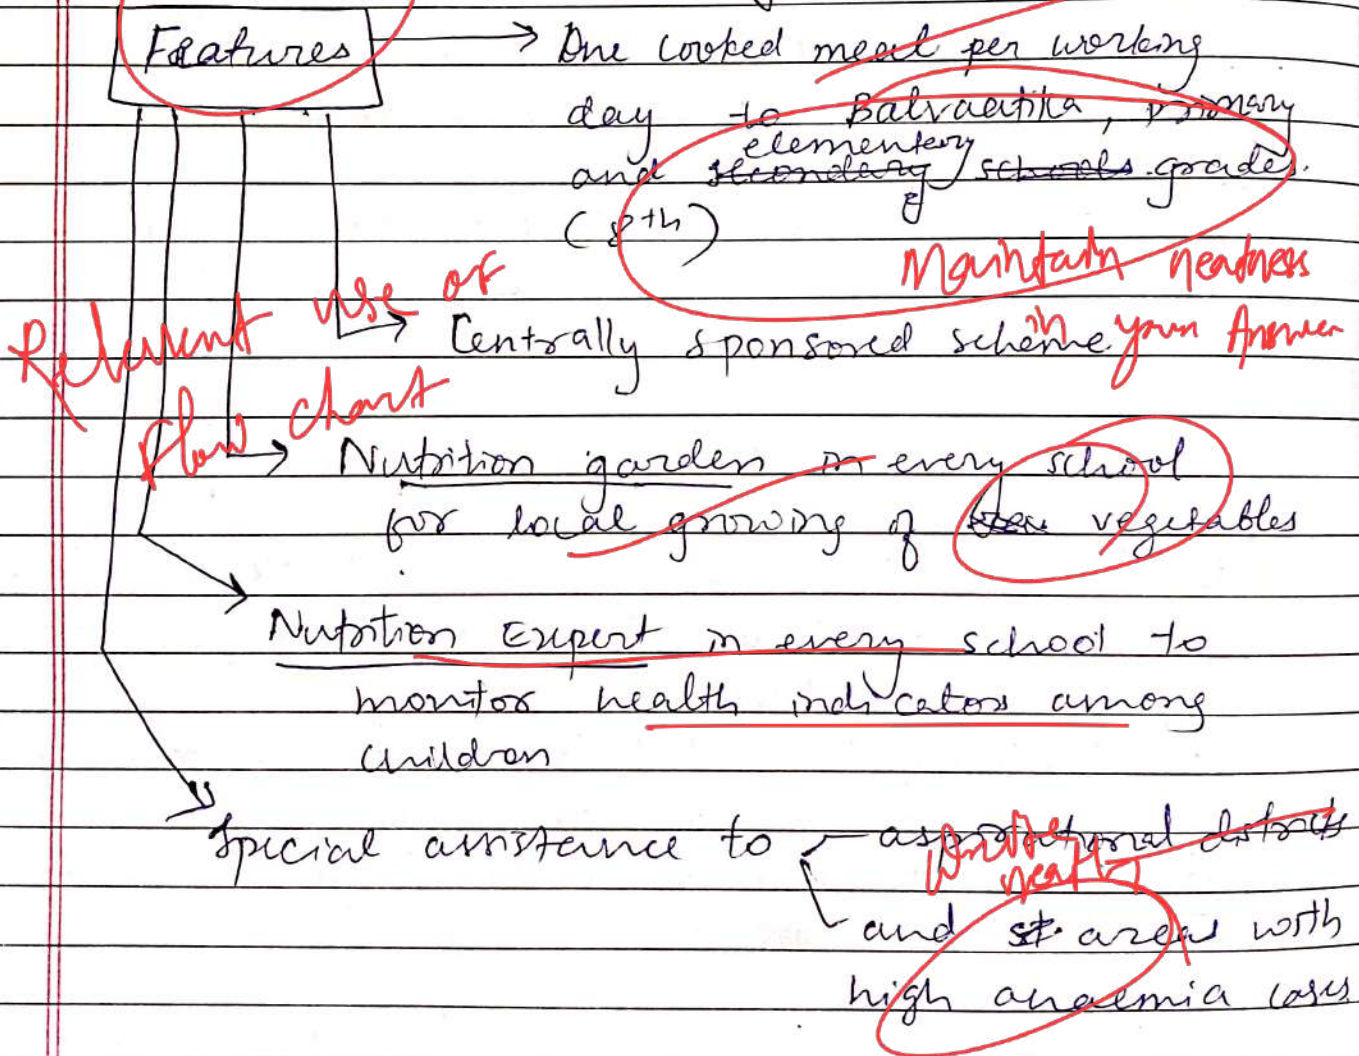 Features → One cooked meal per working
day to Balvaatika, primary
elementary
and secondary schools grades.
(8th)
Maintain neatness
in your Answer
Relevant use of
Flow chart
→ Centrally sponsored scheme.
→ Nutrition garden in every school
for local growing of vegetables
Nutrition Expert in every school to
monitor health indicators among
children
Special assistance to aspirational districts
Write
neatly
and st. areas with
high anaemia cases